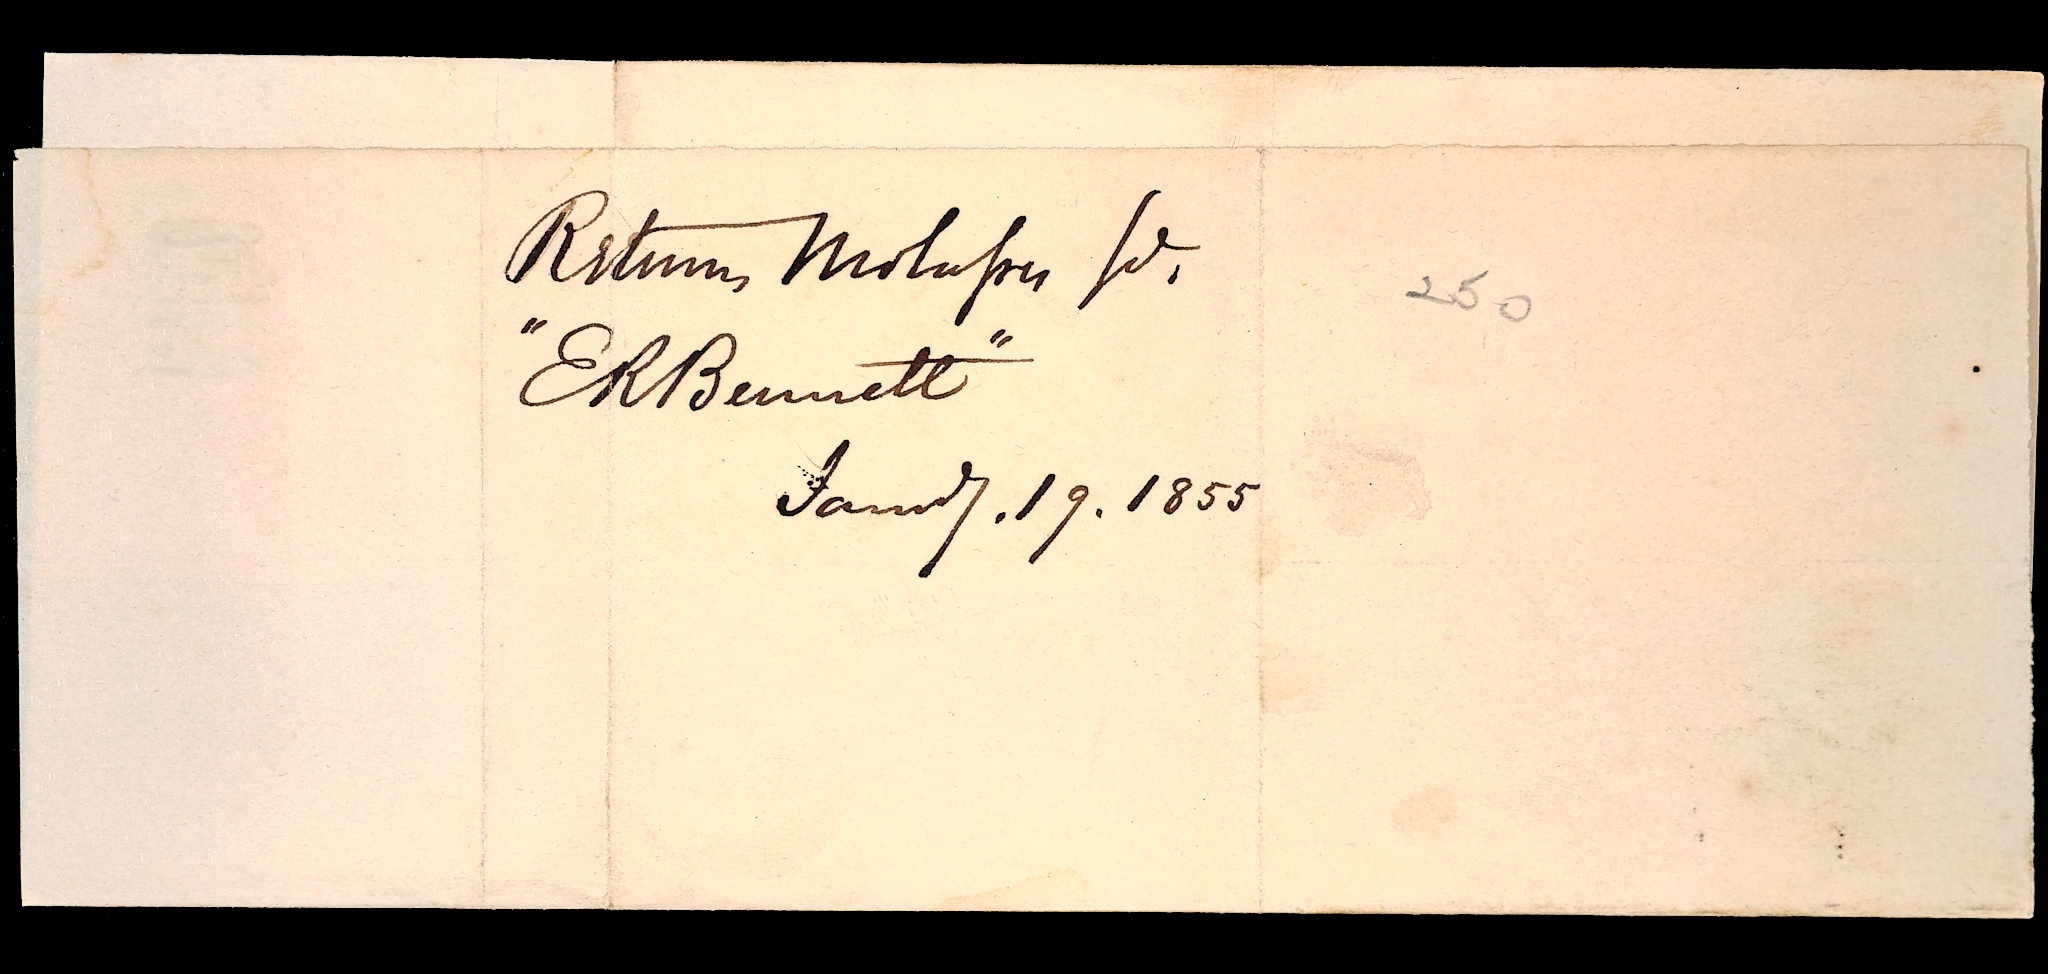 Returns Molasses pr.
250
"E R Bennett"
Jany. 19. 1855